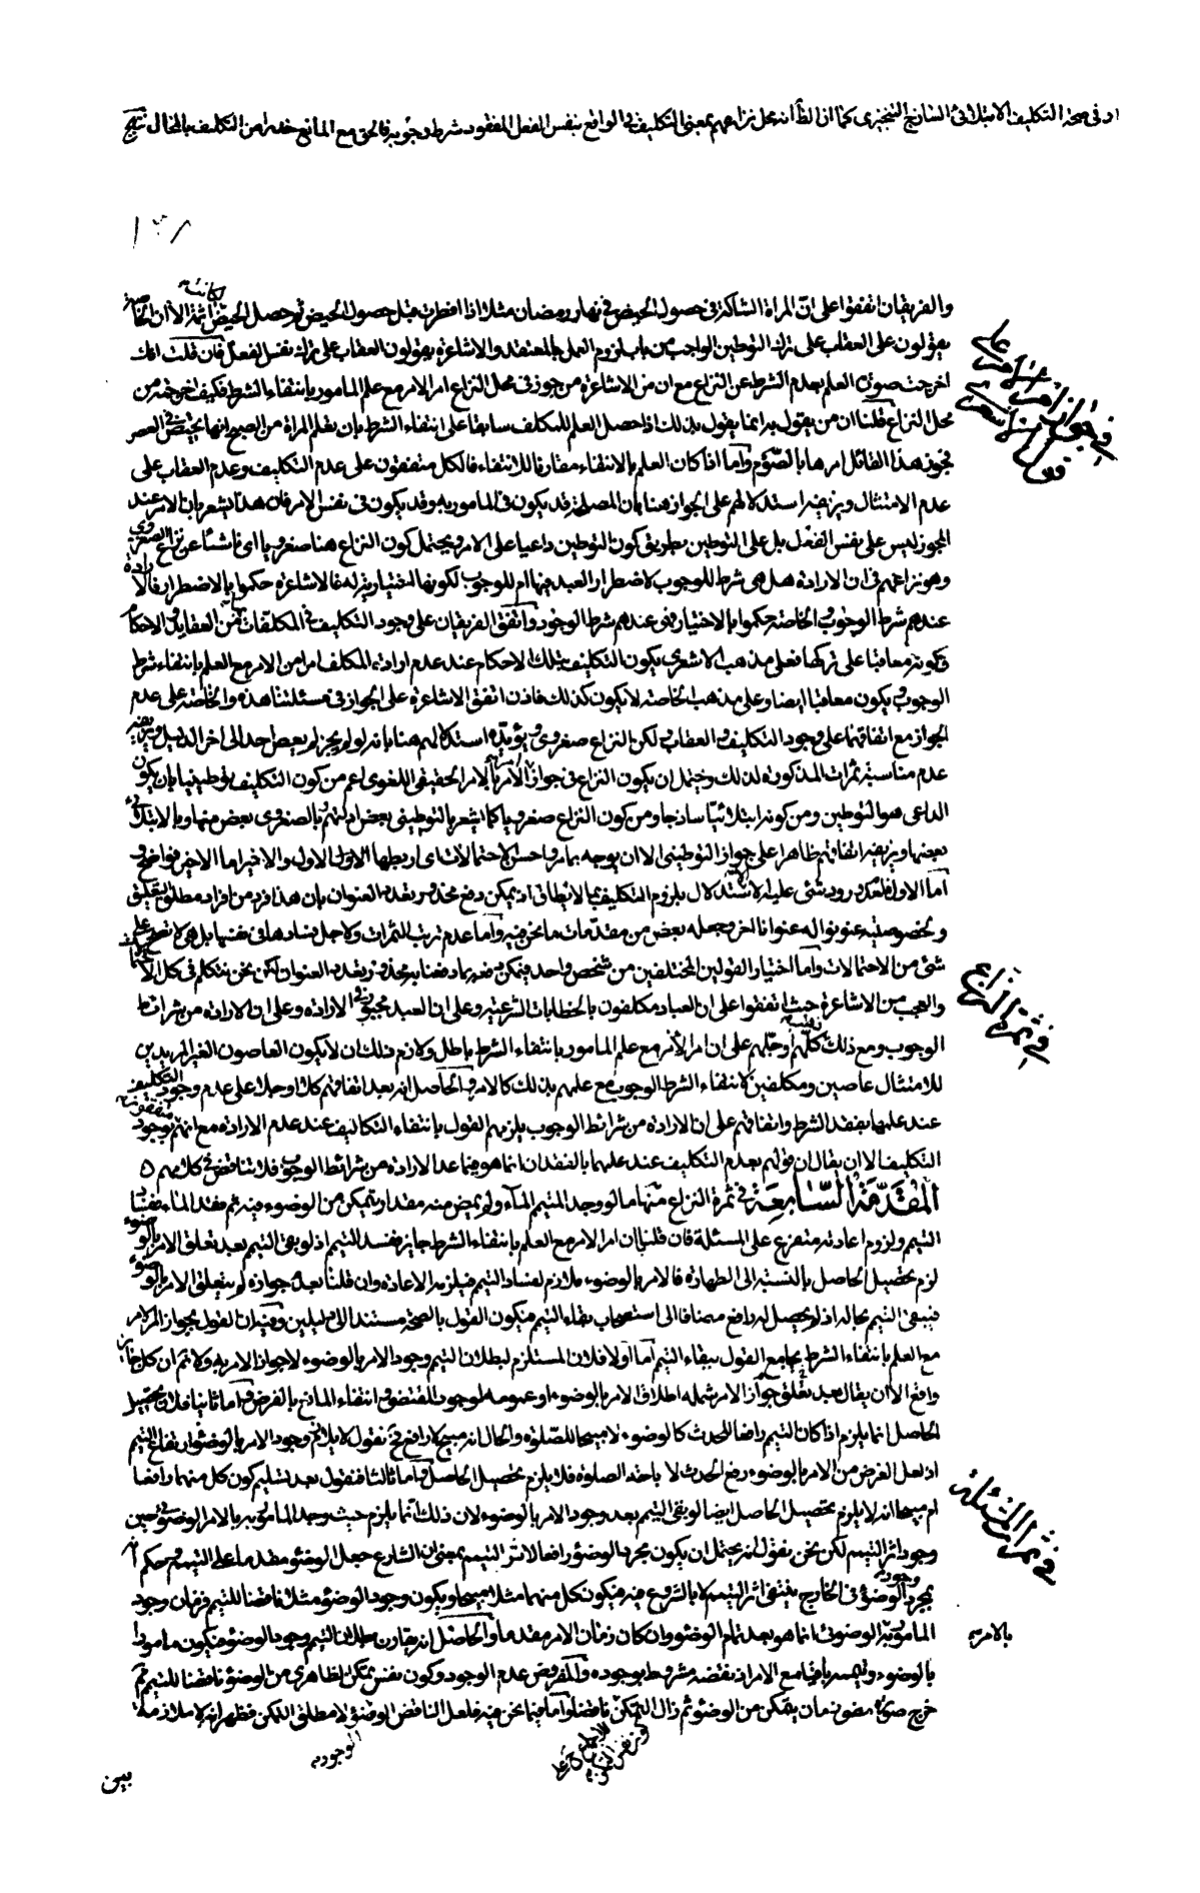 او في صحة التكليف الابتلائي الشأني التنجيزي كما ان الظ انه محل نزاعهم بمعنى التكليف في الواقع بنفس الفعل المفقود شرط وجوبه فالحق مع المانع حذرا من التكليف بالمحال
١٣٨
والفريقان اتفقوا على ان المراة الشاكة في حصول الحيض في نهار رمضان مثلا اذا افطرت قبل حصول الحيض ثم حصل الحيض كانت اثمة الا ان الخاصة
يقولون على العقاب على ترك التوطين الواجب من باب لزوم العمل بالمعتقد والاشاعرة يقولون العقاب على ترك نفس الفعل فان قلت انك
اخرجت صورة العلم بعدم الشرط عن النزاع مع ان من الاشاعرة من جوز في محل النزاع امر الامر مع علم المامور بانتفاء الشرط فكيف اخرجته من
محل النزاع قلنا ان من يقول به انما يقول بذلك اذا حصل العلم للمكلف سابقا على انتفاء الشرط بان تعلم المراة من الصبح انها تحيض في العصر
فجوز هذا القائل امرها بالصوم واما اذا كان العلم بالانتفاء مقارنا للانتفاء فالكل متفقون على عدم التكليف وعدم العقاب على
عدم الامتثال ويرتضيه استدلالهم على الجواز هنا بان المصلحة قد يكون في المامور به وقد يكون في نفس الامر فان هذا يشعر بان الامر عند
المجوز ليس على نفس الفعل بل على التوطين بطريق كون التوطين داعيا على الامر ويحتمل كون النزاع هنا صغرويا اى ناشئا عن نزاع الصغروي
وهو نزاعهم في ان الارادة هل هي شرط للوجوب لاضطرار العبد فيها ام للوجوب لكونها اختيارية له فالاشاعرة حكموا بالاضطرار فالارادة
عندهم شرط الوجوب والخاصة حكموا بالاختيار فهي عندهم شرط الوجود واتفق الفريقان على وجود التكليف في المكلفات من العقايد والاحكام
وكونه معاقبا على تركها فعلى مذهب الاشعري يكون التكليف بتلك الاحكام عند عدم ارادة المكلف امرا من الامر مع العلم بانتفاء شرط
الوجوب ويكون معاقبا ايضا وعلى مذهب الخاصة لا يكون كذلك فاذن اتفق الاشاعرة على الجواز في مسئلتنا هذه والخاصة على عدم
الجواز مع اتفاقهما على وجود التكليف والعقاب ولكن النزاع صغروي ويؤيده استدلالهم هنا بانه لو لم يجز لم يعص احد الى اخر الدليل ويرتضيه
عدم مناسبة ثمرات المذكورة لذلك ويحتمل ان يكون النزاع في جواز الامر الحقيقي اللغوي اعم من كون التكليف توطينيا بان يكون
الداعي هو التوطين ومن كونه ابتلائيا ساذجا ومن كون النزاع صغرويا كما اشعر بالتوطيني بعض ادلتهم وبالصغروي بعض منها وبالابتلائي
بعضها ويرتضيه اتفاقهم ظاهرا على جواز التوطيني الا ان يوجه بما مر واحسن الاحتمالات اى اربطها الاول الاول والاخير اما الاخير فواضح و
اما الاول فلعدم ورود شئ عليه الا الاستدلال بلزوم التكليف بما لا يطاق اذ يمكن دفع محذور تعدد العنوان بان هذا فرد من افراد مطلق التعليق
ولخصوصيته عنونوا له عنوانا اخر وجعله بعض من مقدمات ما نحن فيه واما عدم ترتب الثمرات ولاجل فسادها في نفسها بل هي لا تصح على
شئ من الاحتمالات واما اختيار القولين المختلفين من شخص واحد فيمكن دفعه بما دفعنا به محذور تعدد العنوان لكن نحن نتكلم في كل الاحتمالات
والعجب من الاشاعرة حيث اتفقوا على ان العباد مكلفون بالخطابات الشرعية وعلى ان العبد مجبور في الارادة وعلى ان الارادة من شرائط
الوجوب ومع ذلك كلهم او جلهم على ان امر الامر مع علم المامور بانتفاء الشرط باطل ولازم ذلك ان لا يكون العاصون الغير المريدين
للامتثال عاصين ومكلفين لانتفاء الشرط الوجوب مع علمهم بذلك كالامر والحاصل انه بعد اتفاقهم كلا او جلا على عدم وجود التكليف
عند علمهما بفقد الشرط واتفاقهم على ان الارادة من شرائط الوجوب يلزمهم القول بانتفاء التكاليف عند عدم الارادة مع انهم متفقون بوجود
التكليف الا ان يقال ان قولهم بعدم التكليف عند علمهما بالفقدان انما هو فيما عدا الارادة من شرائط الوجوب فلا تناقض في كلامهم ٥
المقدمة السابعة في ثمرة النزاع منها ما لو وجد المتيمم الماء ولم يمض منه مقدار يتمكن من الوضوء فيه ثم فقد الماء فبقاء
التيمم ولزوم اعادته متفرع على المسئلة فان قلنا بان امر الامر مع العلم بانتفاء الشرط جايز يفسد التيمم اذ لو بقى التيمم بعد تعلق الامر بالوضوء
لزم تحصيل الحاصل بالنسبة الى الطهارة فالامر بالوضوء ملازم لفساد التيمم فيلزمه الاعادة وان قلنا بعدم جوازه لم يتعلق الامر بالوضوء
فيبقى التيمم بحاله اذ لم يحصل له رافع مضافا الى استصحاب بقاء التيمم فيكون القول بالصحة مستندا الى دليلين وفيه ان القول بجواز امر الامر
مع العلم بانتفاء الشرط يجامع القول ببقاء التيمم اما اولا فلان المستلزم لبطلان التيمم وجود الامر بالوضوء لا جواز الامر به ولا ثم ان كل جائز
واقع الا ان يقال بعد تعلق جواز الامر شمله اطلاق الامر بالوضوء او عمومه لوجود المقتضي وانتفاء المانع بالفرض واما ثانيا فلان تحصيل
الحاصل انما يلزم اذا كان التيمم رافعا للحدث كالوضوء لا مبيحا للصلوة والحال انه مبيح لا رافع فح نقول لا يلازم وجود الامر بالوضوء ارتفاع التيمم
اذ لعل الغرض من الامر بالوضوء رفع الحدث لا باحة الصلوة فلا يلزم تحصيل الحاصل واما ثالثا فنقول بعد تسليم كون كل منهما رافعا
ام مبيحا انه لا يلزم تحصيل الحاصل ايضا لو بقى التيمم بعد وجود الامر بالوضوء لان ذلك انما يلزم حيث وجد المامور به بالامر الوضوئي حين
وجود اثر التيمم لكن نحن نقول انه يحتمل ان يكون مجرد الوضوء رافعا لاثر التيمم بمعنى ان الشارع جعل الوضوء مقدما على التيمم وحكم
بمجرد وجود الوضوء في الخارج ينتفي اثر التيمم لا بالشروع فيه فيكون كل منهما مثلا مبيحا ويكون وجود الوضوء مثلا ناقضا للتيمم وزمان وجود
المامور به الوضوئي انما هو بعد تمام الوضوء وان كان زمان الامر مقدما والحاصل انه يقارن بطلان التيمم وجود الوضوء فيكون مامورا
بالوضوء وتيممه باقيا مع الامر اذ نقضه مشروط بوجوده والمفروض عدم الوجود وكون نفس تمكن الظاهري من الوضوء ناقضا للتيمم ثم
خرج صورة مضي زمان يتمكن من الوضوء ثم زال التمكن ناقضا واما فيما نحن فيه فلعل الناقض الوضوء لا مطلق التمكن فظهر انه لا ملازمة
بين
في ثمرة النزاع
في ثمرات المسئلة
بالامر به
الوجود